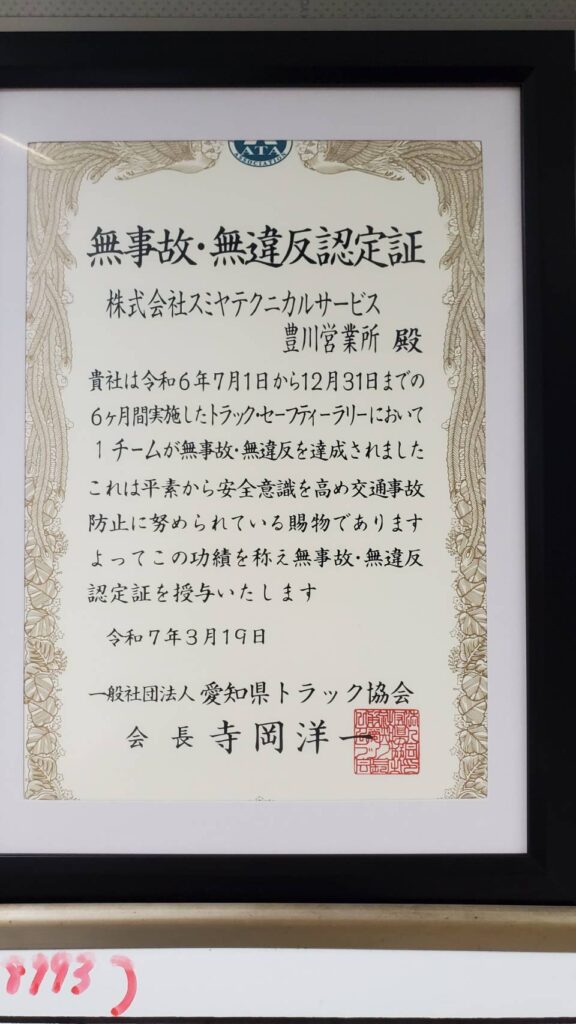 ATA
ASSOCIATION
無事故・無違反認定証
株式会社スミヤテクニカルサービス
豊川営業所 殿
貴社は令和6年7月1日から12月31日までの
6ヶ月間実施したトラック・セーフティーラリーにおいて
1チームが無事故・無違反を達成されました
これは平素から安全意識を高め交通事故
防止に努められている賜物であります
よってこの功績を称え無事故・無違反
認定証を授与いたします
令和7年3月19日
一般社団法人 愛知県トラック協会
会長 寺岡洋一
8793)